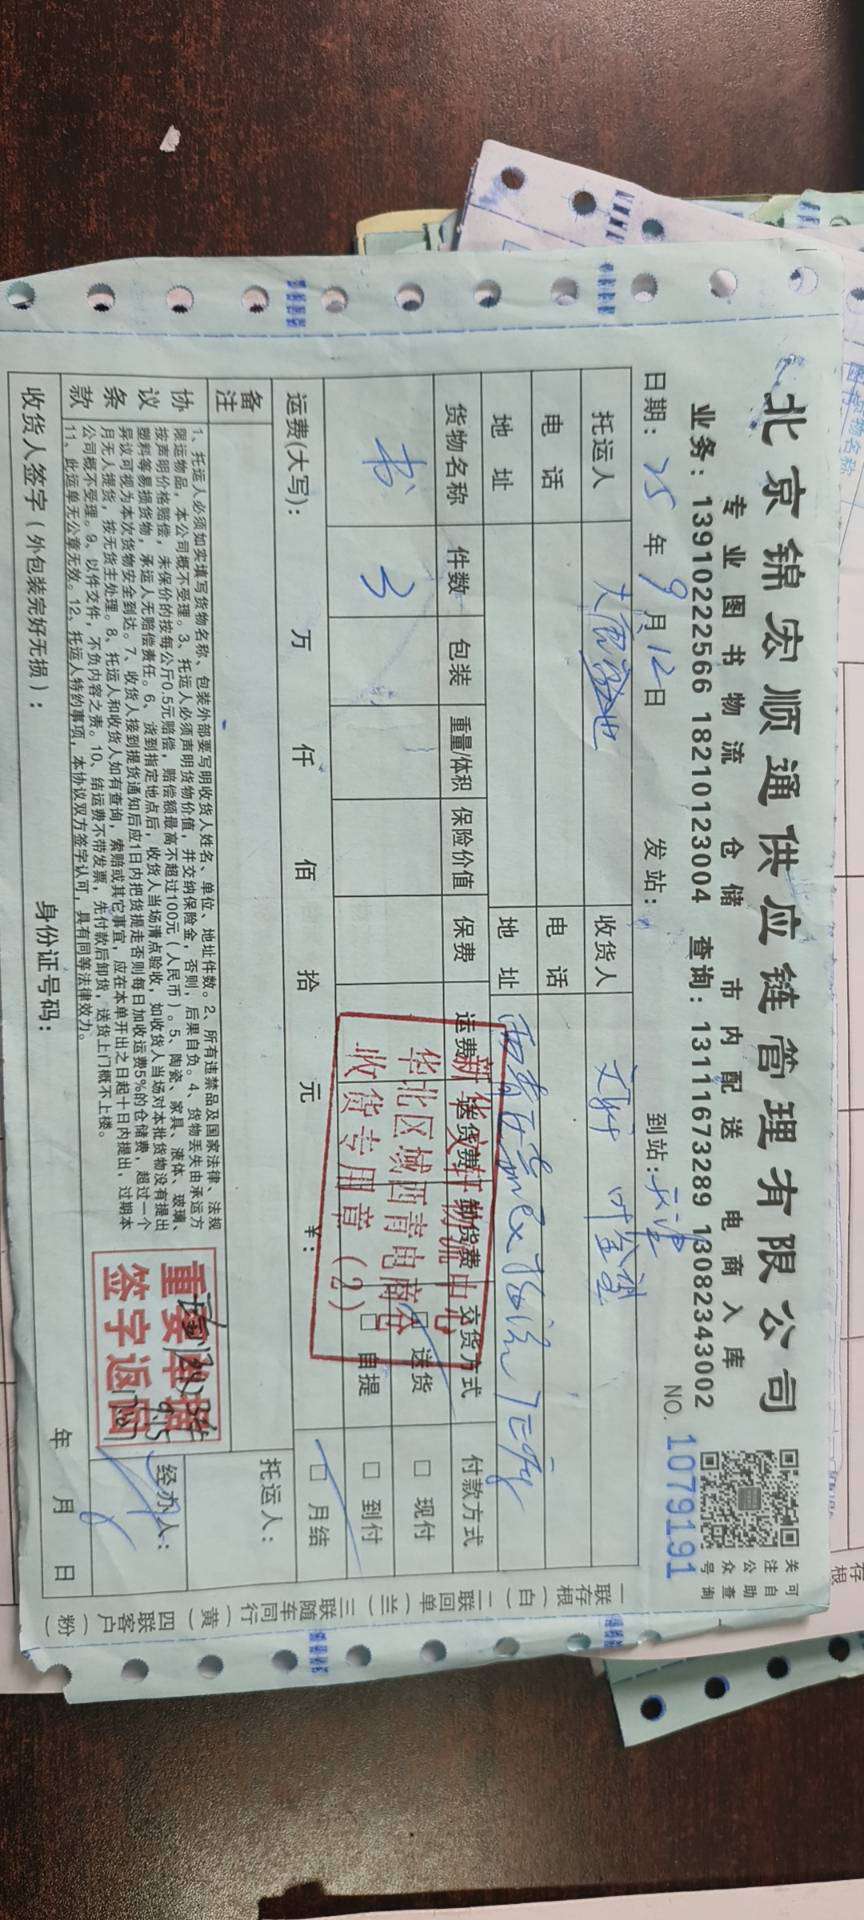 北京锦宏顺通供应链管理有限公司
专业图书物流 仓储 市内配送 电商入库
业务：13910222566 18210123004 查询：13111673289 13082343002
可自助查询
关注公众号
日期：25年9月12日 发站： 到站：天津 NO. 1079191
托运人 收货人 文轩
电话 电话
地址 地址
货物名称 件数 包装 重量/体积 保险价值 保费 运费 送货费 交货方式 付款方式
书 3 □送货 □现付
□自提 □到付
运费(大写)： 万 仟 佰 拾 元 ￥： □月结
新华文轩物流中心
华北区域西青电商仓
收货专用章（2）
备注 托运人：
协议条款
1、托运人必须如实填写货物名称、包装外部要写明收货人姓名、单位、地址件数。2、所有违禁品及国家法律、法规
限运物品，本公司概不受理。3、托运人必须声明货物价值，并交纳保险金，否则，后果自负。4、货物丢失由承运方
按声明价格赔偿，未保价的按每公斤0.5元赔偿，赔偿额最高不超过100元（人民币）。5、陶瓷、家具、液体、玻璃、
塑料等易损货物，承运人无赔偿责任。6、货到指定地点后，收货人当场清点验收，如收货人当场对本批货物没有提出
异议可视为本次货物安全到达。7、收货人接到提货通知后应1日内把货提走否则每日加收运费5%的仓储费，超过一个
月无人提货，按无货主处理。8、托运人和收货人如有查询，索赔或其它事宜，应在本单开出之日起十日内提出，过期本
公司概不受理。9、以件交件，不负内容之责。10、结运费不带发票，先付款后卸货，送货上门概不上楼。
11、此运单无公章无效。12、托运人特约事项，本协议双方签字认可，具有同等法律效力。
重要单据
签字返回
经办人：
收货人签字（外包装完好无损）： 身份证号码： 年 月 日
一联存根（白） 二联回单（兰） 三联随车同行（黄） 四联客户（粉）